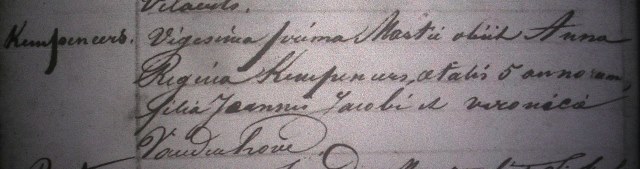 Kempeneers. Vigesima prima Martii obiit Anna
Regina Kempeneers, ætatis 5 annorum,
filia Joannis Jacobi et veronica